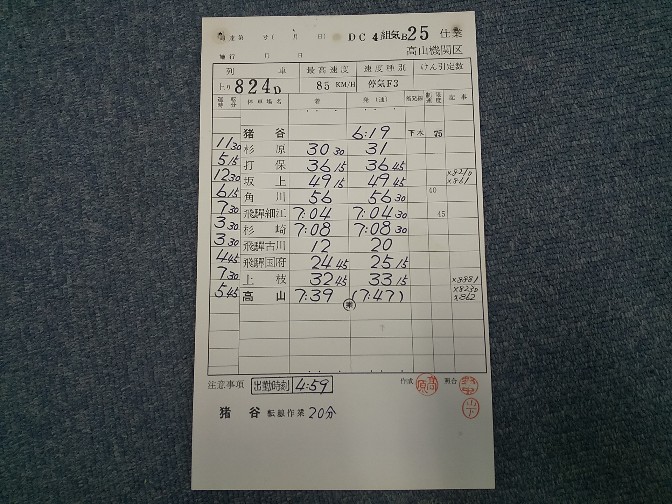 月 日 DC 4 組気B25 仕業
施行 月 日 高山機関区
列車 最高速度 速度種別 けん引定数
上り 824D 85 KM/H 停気F3
運転時分 停車場名 着 発(通) 着発線 制限速度 記事
猪谷 6:19 下本 25
11 30 杉原 30 30 31
5 15 打保 36 15 36 45
12 30 坂上 49 15 49 45
6 15 角川 56 56 30 40
7 30 飛騨細江 7:04 7:04 30 45
3 30 杉崎 7:08 7:08 30
3 30 飛騨古川 12 20
4 45 飛騨国府 24 45 25 15
7 30 上枝 32 45 33 15
5 45 高山 7:39 (7:47)
注意事項 出勤時刻 4:59 作成 照合
猪谷 転線作業 20分